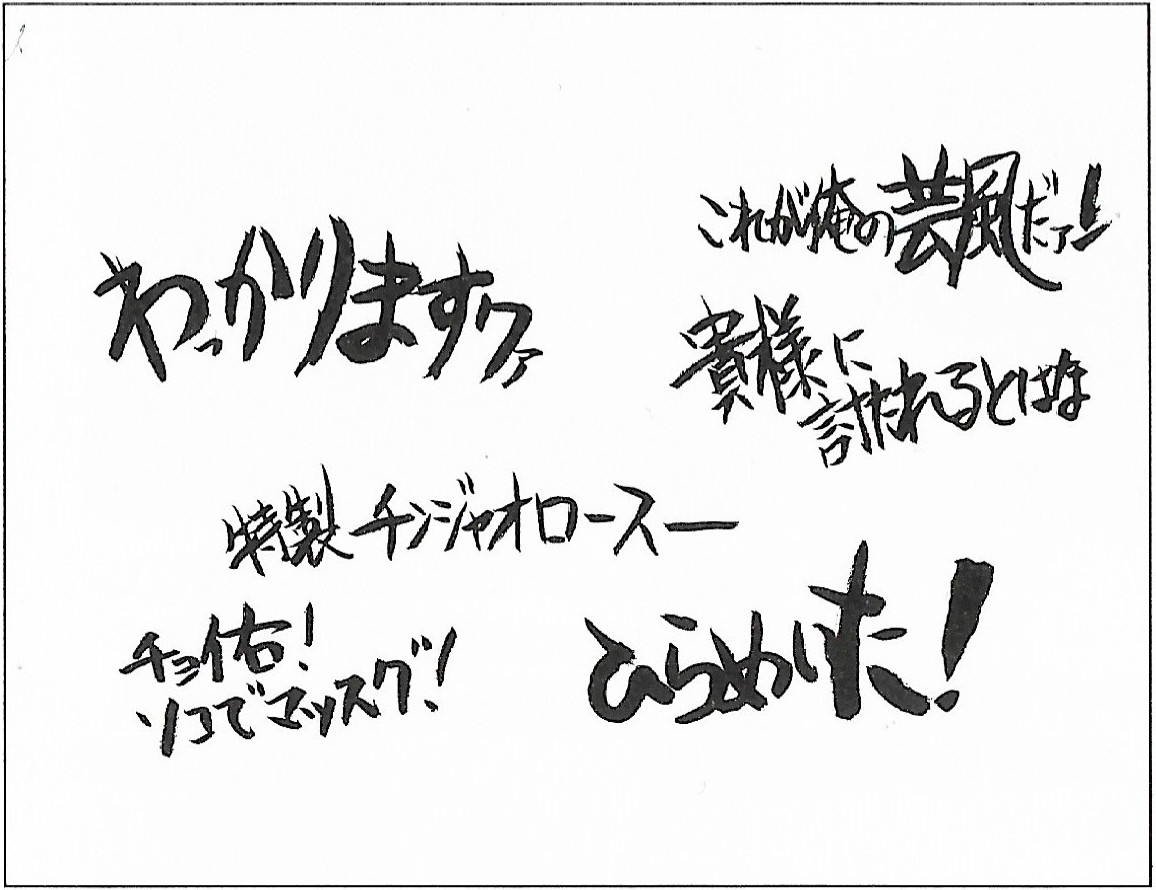 これが俺の芸風だァー!
わっかりますヮァ
貴様に
討たれるとはな
特製チンジャオロースー
チョイ右!
ソコでマッスグ!
ひらめいた!